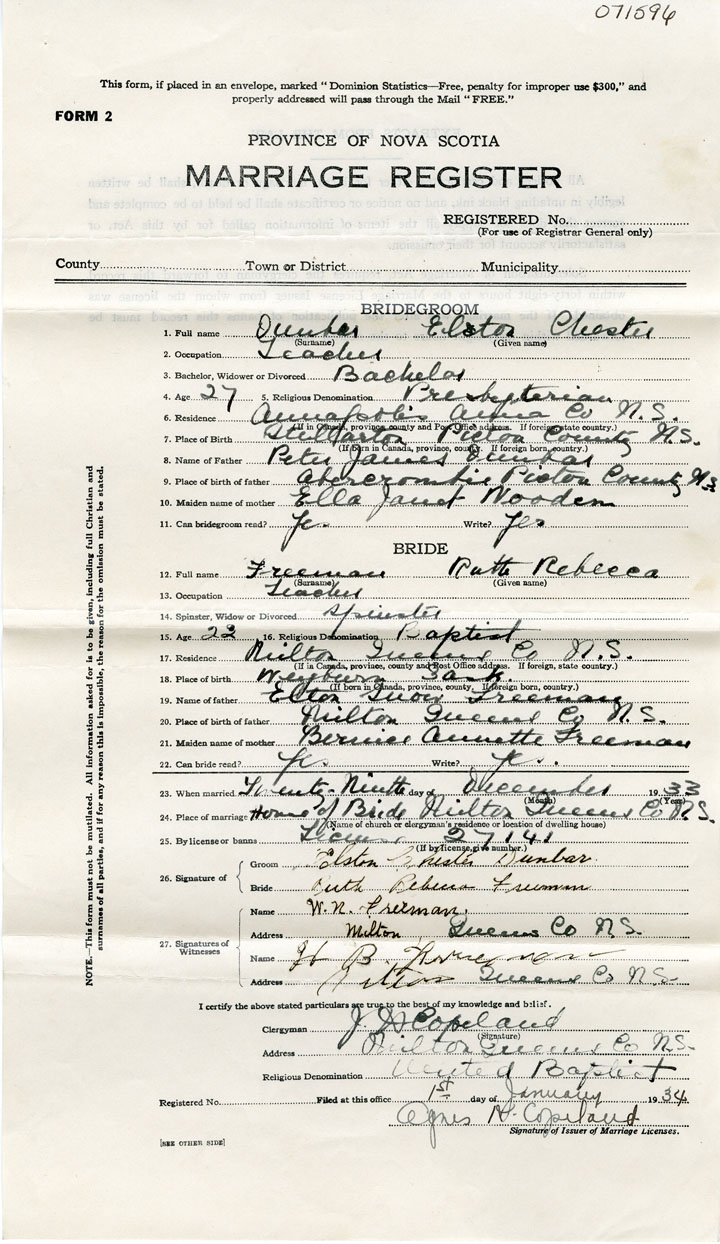 071596
This form, if placed in an envelope, marked "Dominion Statistics—Free, penalty for improper use $300," and
properly addressed will pass through the Mail "FREE."
FORM 2
PROVINCE OF NOVA SCOTIA
MARRIAGE REGISTER
REGISTERED No.
(For use of Registrar General only)
County Town or District Municipality
BRIDEGROOM
1. Full name Dunbar Elston Chester
(Surname) (Given name)
2. Occupation Teacher
3. Bachelor, Widower or Divorced Bachelor
4. Age 27 5. Religious Denomination Presbyterian
6. Residence Annapolis Anna Co N.S.
(If in Canada, province, county and Post Office address. If foreign, state country.)
7. Place of Birth Stellarton Pictou County N.S.
(If born in Canada, province, county. If foreign born, country.)
8. Name of Father Peter James Dunbar
9. Place of birth of father Abercrombie Pictou County N.S.
10. Maiden name of mother Ella Janet Wooden
11. Can bridegroom read? Yes Write? Yes
BRIDE
12. Full name Freeman Ruth Rebecca
(Surname) (Given name)
13. Occupation Teacher
14. Spinster, Widow or Divorced Spinster
15. Age 22 16. Religious Denomination Baptist
17. Residence Milton Queens Co N.S.
(If in Canada, province, county and Post Office address. If foreign, state country.)
18. Place of birth Weyburn Sask.
(If born in Canada, province, county. If foreign born, country.)
19. Name of father Elton Snow Freeman
20. Place of birth of father Milton Queens Co N.S.
21. Maiden name of mother Bernice Annette Freeman
22. Can bride read? Yes Write? Yes.
23. When married Twenty-Ninth day of December 1933
(Month) (Year)
24. Place of marriage Home of Bride Milton Queens Co N.S.
(Name of church or clergyman's residence or location of dwelling house)
25. By license or banns License 27141
(If by license, give number.)
26. Signature of
Groom Elston Chester Dunbar
Bride Ruth Rebecca Freeman
27. Signatures of Witnesses
Name W. N. Freeman.
Address Milton Queens Co N.S.
Name H B.
Address Milton Queens Co N.S.
I certify the above stated particulars are true to the best of my knowledge and belief.
Clergyman J. D. Copeland
(Signature)
Address Milton Queens Co N.S.
Religious Denomination United Baptist
Registered No. Filed at this office 1st day of January 1934
Agnes H. Copeland
Signature of Issuer of Marriage Licenses.
[SEE OTHER SIDE]
NOTE.—This form must not be mutilated. All information asked for is to be given, including full Christian and
surnames of all parties, and if for any reason this is impossible, the reason for the omission must be stated.